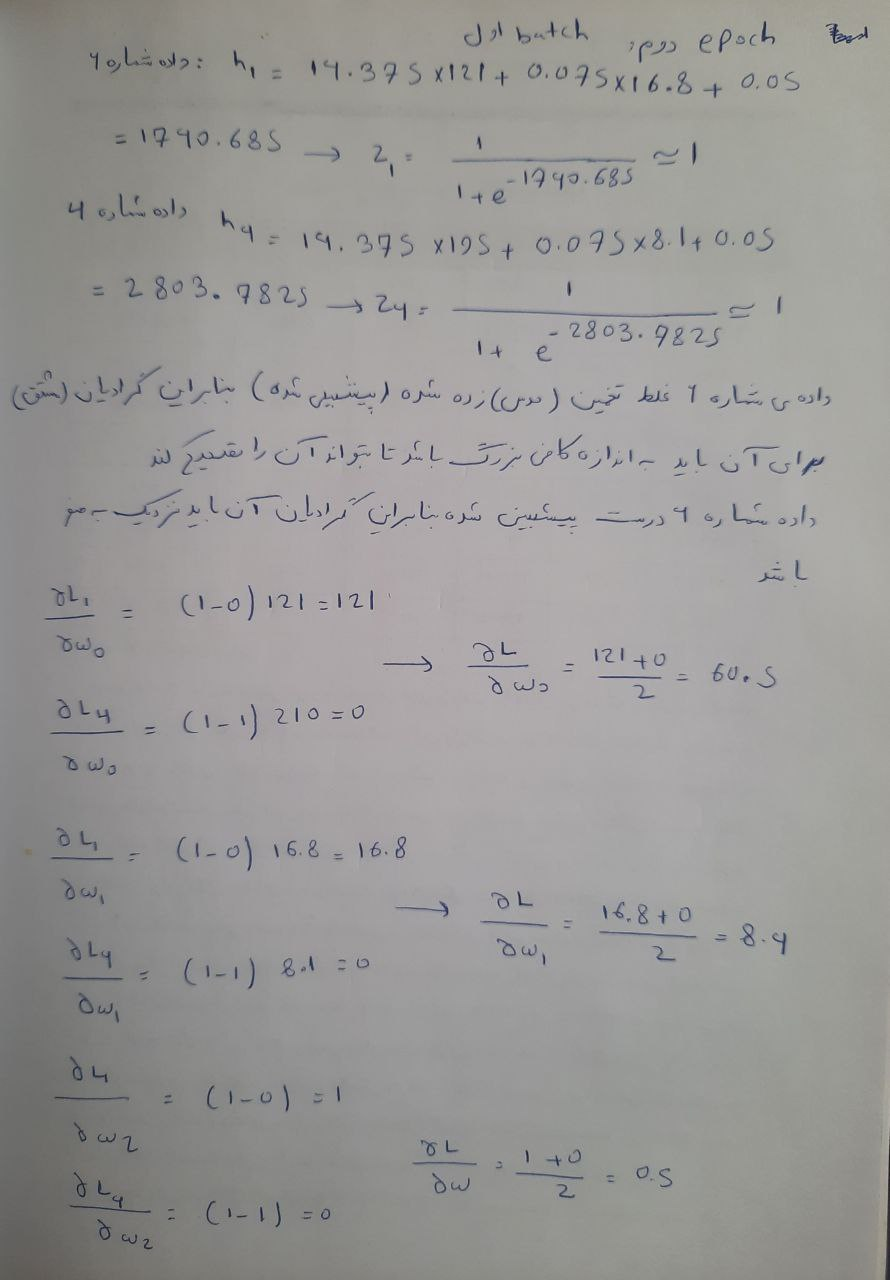 epoch دوم, batch اول
داده شماره 1: h₁ = 14.375×121 + 0.075×16.8 + 0.05
= 1740.685 → z₁ = 1/(1+e^-1740.685) ≃ 1
داده شماره 4 h₄ = 14.375×195 + 0.075×8.1+0.05
= 2803.7825 → z₄ = 1/(1+e^-2803.7825) ≃ 1
داده ی شماره 1 غلط تخمین (حدس) زده شده (پیشبینی شده) بنابراین گرادیان (مشتق)
برای آن باید به اندازه کافی بزرگ باشد تا بتواند آن را تصحیح کند
داده شماره 4 درست پیشبینی شده بنابراین گرادیان آن باید نزدیک به صفر
باشد
∂L₁/∂w₀ = (1-0) 121 = 121
→ ∂L/∂w₀ = (121+0)/2 = 60.5
∂L₄/∂w₀ = (1-1) 210 = 0
∂L₁/∂w₁ = (1-0) 16.8 = 16.8
→ ∂L/∂w₁ = (16.8+0)/2 = 8.4
∂L₄/∂w₁ = (1-1) 8.1 = 0
∂L₁/∂w₂ = (1-0) = 1
∂L/∂w = (1+0)/2 = 0.5
∂L₄/∂w₂ = (1-1) = 0